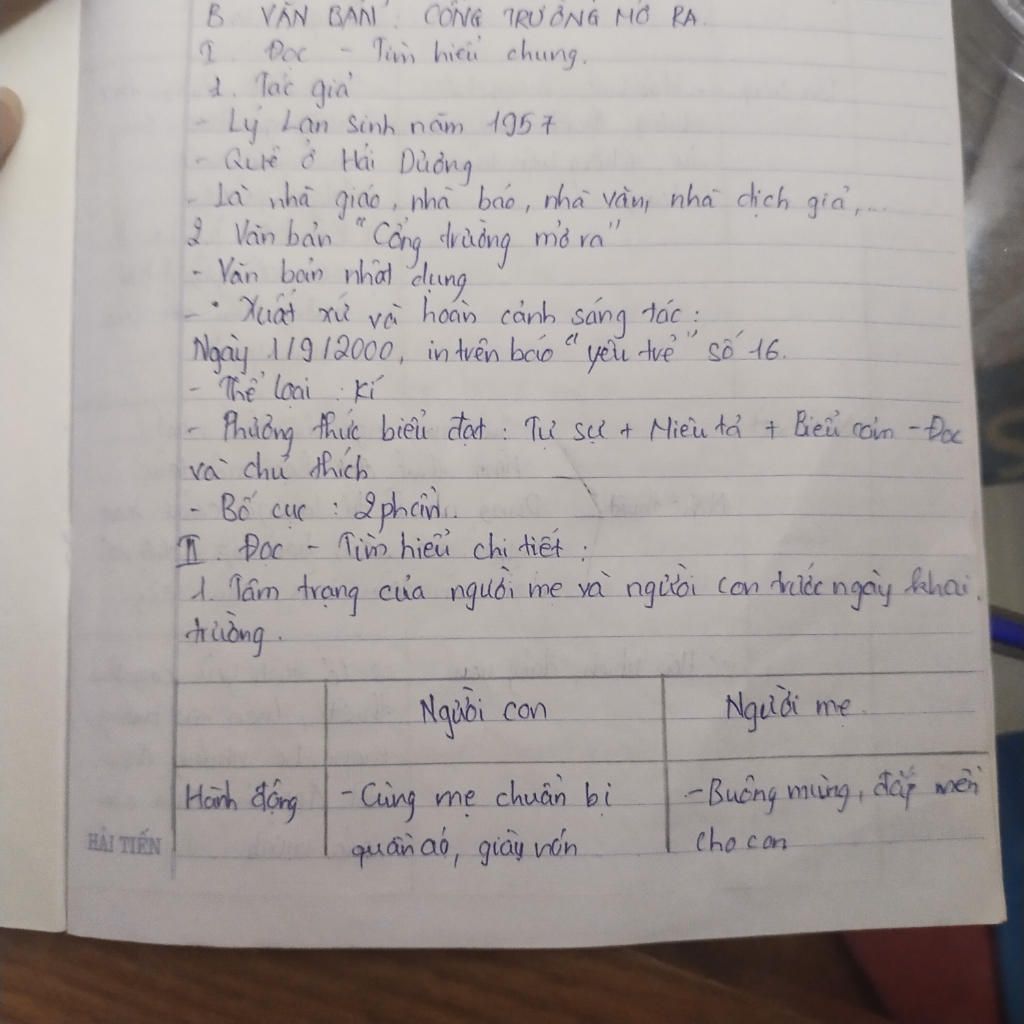 B. VĂN BẢN : CỔNG TRƯỜNG MỞ RA.
I. Đọc - Tìm hiểu chung.
1. Tác giả
- Lý Lan sinh năm 1957
- Quê ở Hải Dương
- Là nhà giáo, nhà báo, nhà văn, nhà dịch giả,...
2. Văn bản "Cổng trường mở ra"
- Văn bản nhật dụng
- • Xuất xứ và hoàn cảnh sáng tác :
Ngày 1/9/2000, in trên báo "yêu trẻ" số 16.
- Thể loại : kí
- Phương thức biểu đạt : Tự sự + Miêu tả + Biểu cảm - Đọc
và chú thích
- Bố cục : 2 phần.
II. Đọc - Tìm hiểu chi tiết :
1. Tâm trạng của người mẹ và người con trước ngày khai
trường.
Người con Người mẹ
Hành động - Cùng mẹ chuẩn bị - Buông mùng, đắp mền
quần áo, giày nón cho con
HẢI TIẾN